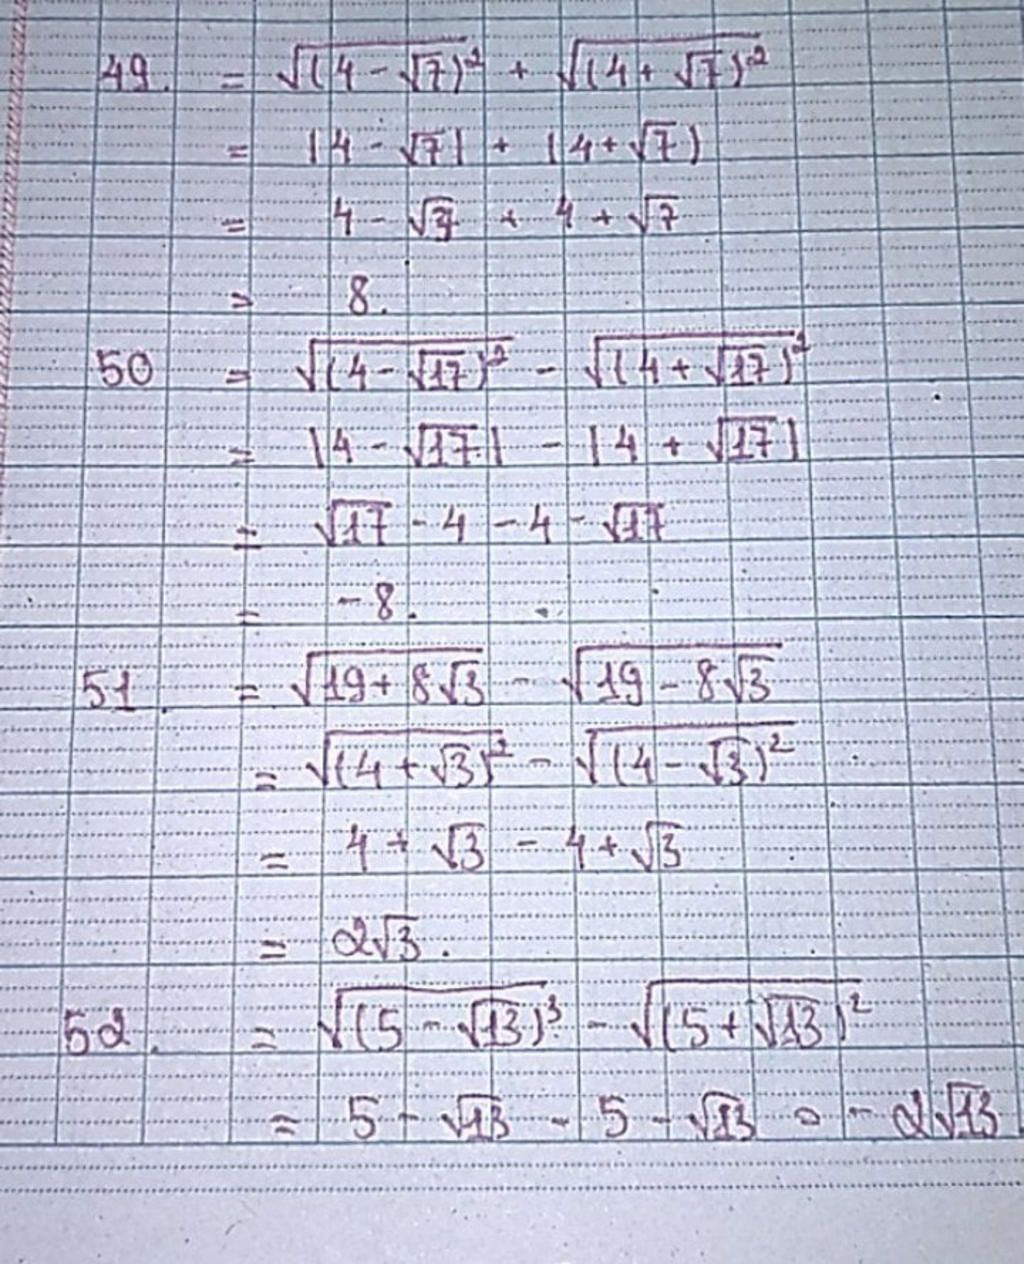 49. = √(4 - √7)² + √(4 + √7)²
= |4 - √7| + |4 + √7)
= 4 - √7 + 4 + √7
= 8.
50 = √(4 - √17)² - √(4 + √17)²
= |4 - √17| - |4 + √17|
= √17 - 4 - 4 - √17
= -8.
51. = √19 + 8√3 - √19 - 8√3
= √(4 + √3)² - √(4 - √3)²
= 4 + √3 - 4 + √3
= 2√3.
52. = √(5 - √13)³ - √(5 + √13)²
= 5 - √13 - 5 - √13 = -2√13